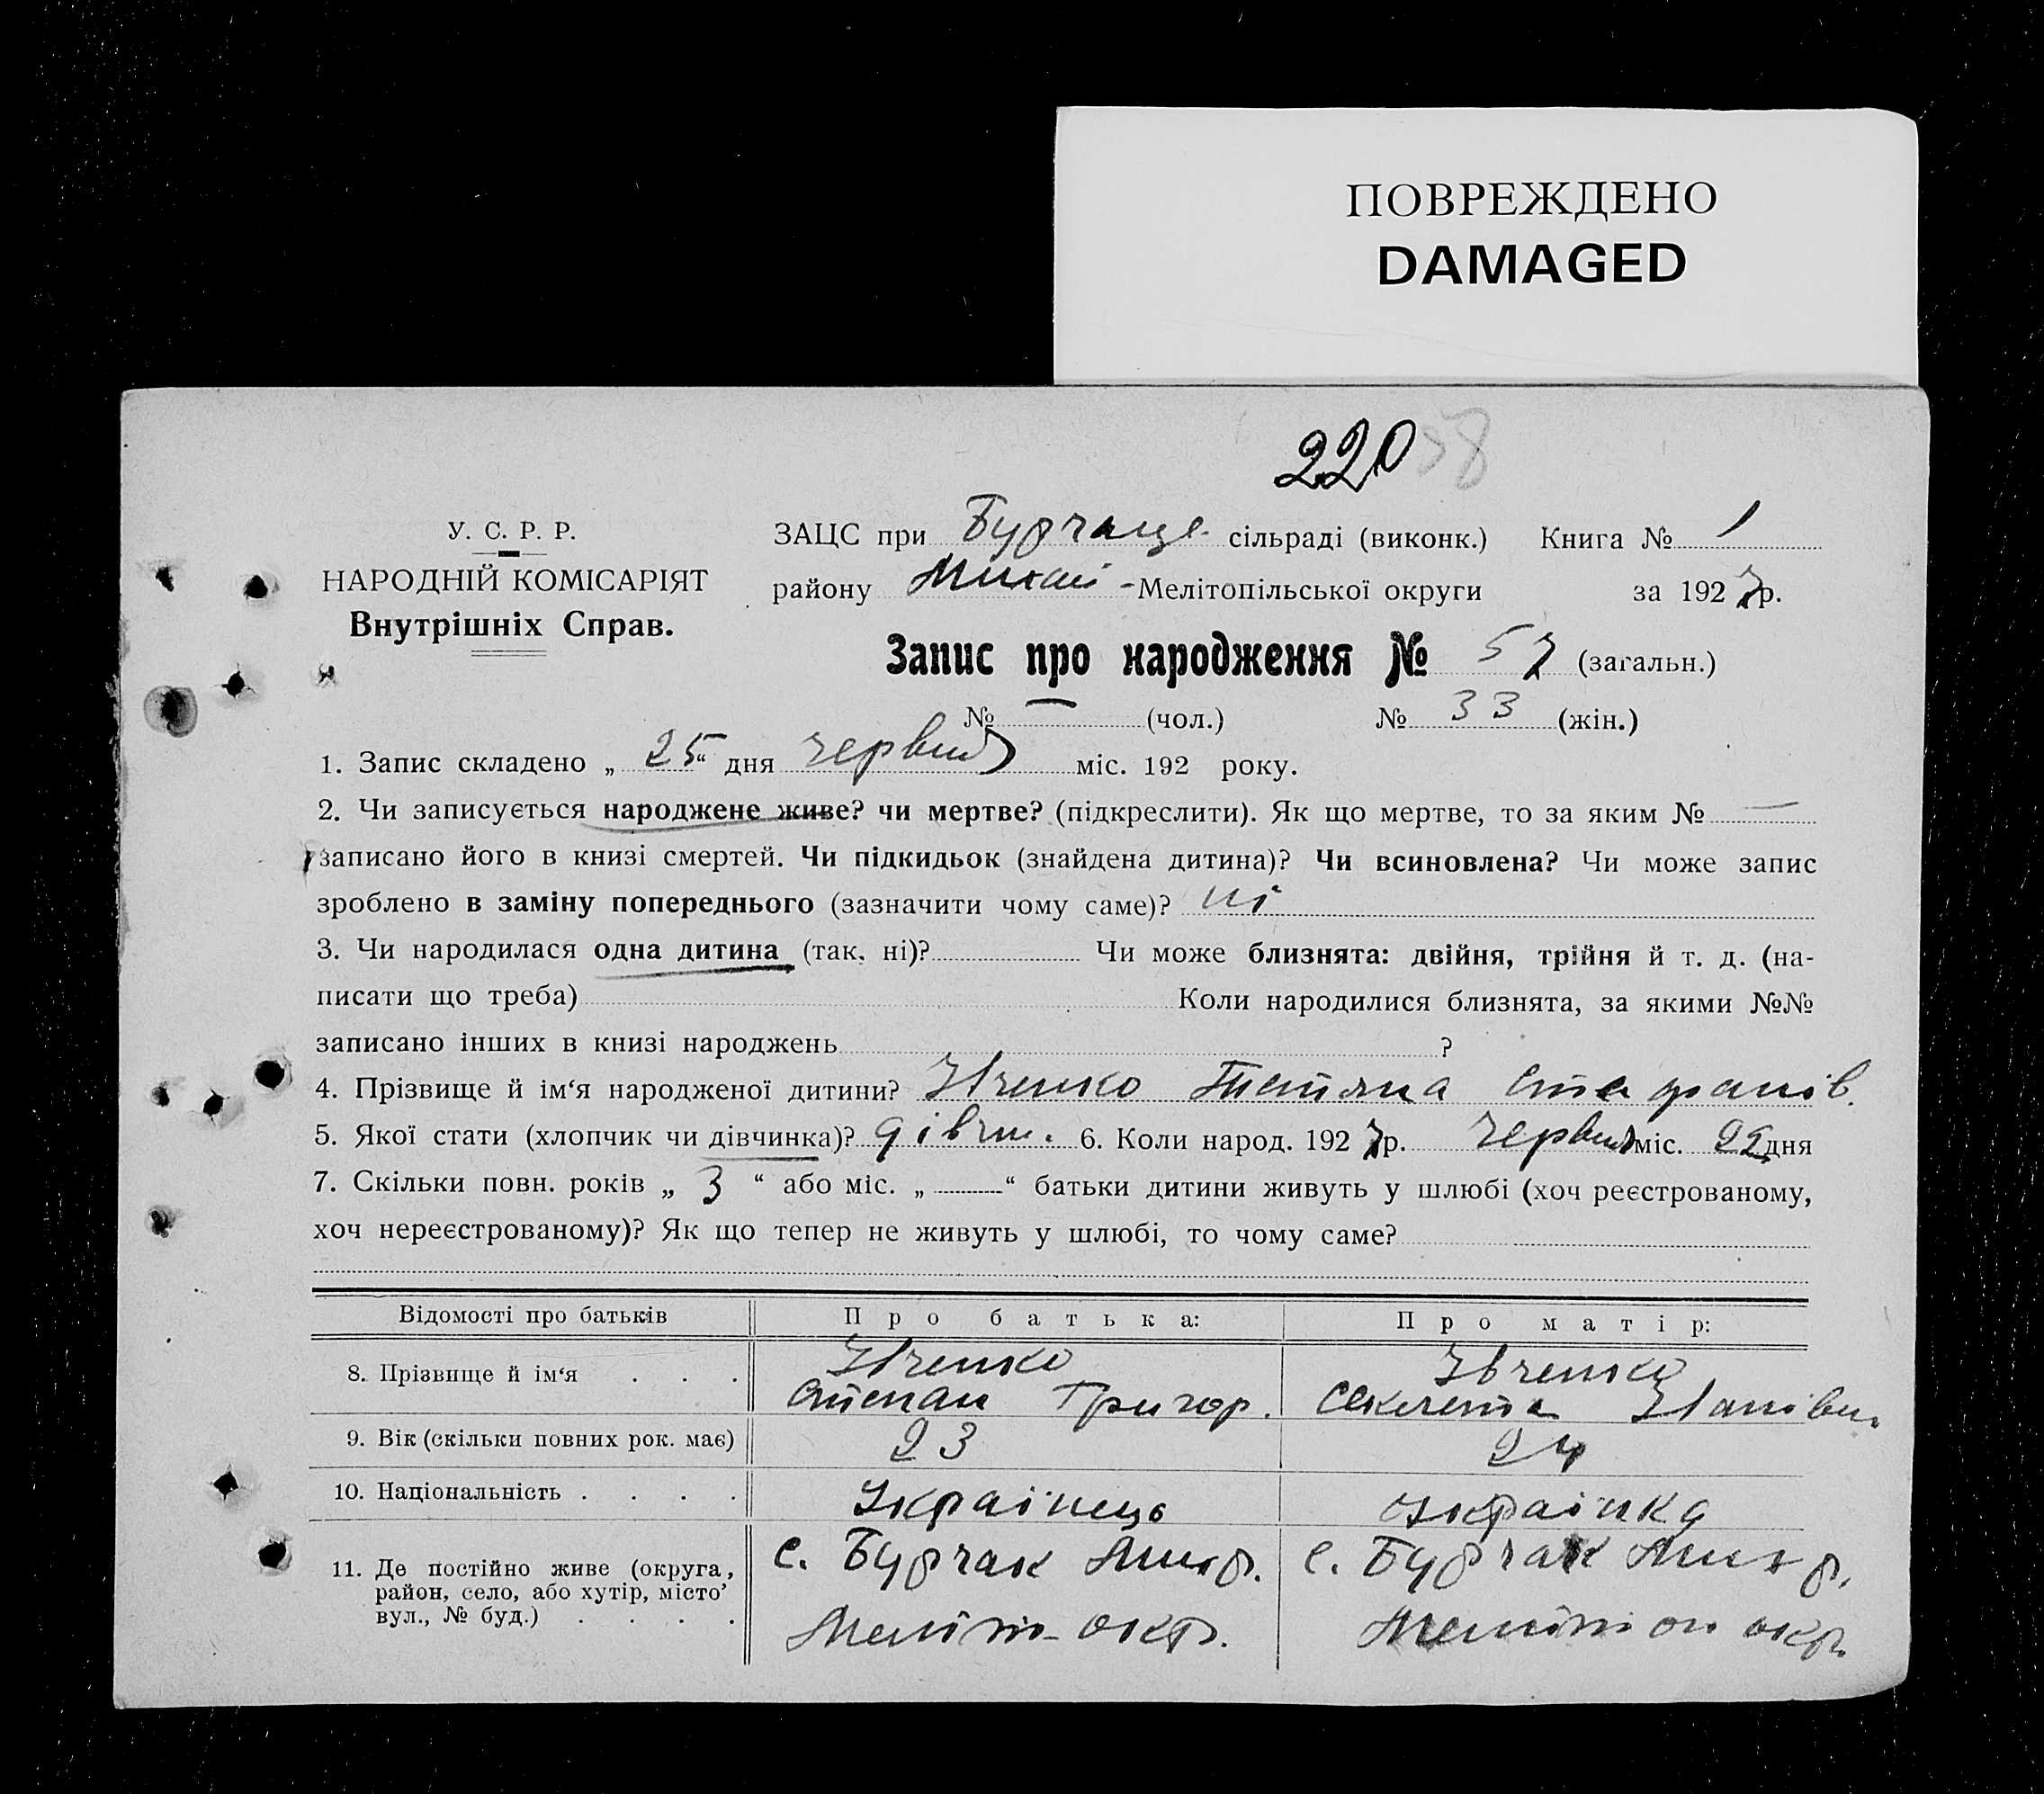 ПОВРЕЖДЕНО
DAMAGED
220 58
У. С. Р. Р.
НАРОДНІЙ КОМІСАРІЯТ
Внутрішніх Справ.
ЗАЦС при Бурчаце сільраді (виконк.) Книга № 1
району Михай -Мелітопільської округи за 1927 р.
Запис про народження № 57 (загальн.)
№ — (чол.) № 33 (жін.)
1. Запис складено „ 25 “ дня червня міс. 192 року.
2. Чи записується народжене живе? чи мертве? (підкреслити). Як що мертве, то за яким № —
записано його в книзі смертей. Чи підкидьок (знайдена дитина)? Чи всиновлена? Чи може запис
зроблено в заміну попереднього (зазначити чому саме)? ні
3. Чи народилася одна дитина (так, ні)? Чи може близнята: двійня, трійня й т. д. (на-
писати що треба) Коли народилися близнята, за якими №№
записано інших в книзі народжень ?
4. Прізвище й ім‘я народженої дитини? Івченко Тетяна Стефанів.
5. Якої стати (хлопчик чи дівчинка)? дівчи. 6. Коли народ. 1927 р. червня міс. 22 дня
7. Скільки повн. років „ 3 “ або міс. „ — “ батьки дитини живуть у шлюбі (хоч реєстрованому,
хоч нереєстрованому)? Як що тепер не живуть у шлюбі, то чому саме?
Відомості про батьків Про батька: Про матір:
8. Прізвище й ім‘я . . . Івченко Івченко
Степан Григор. Секлета Іванівн.
9. Вік (скільки повних рок. має) 23 24
10. Національність . . . . Українець Українка
11. Де постійно живе (округа, с. Бурчак Мих р. с. Бурчак Мих р.
район, село, або хутір, місто’
вул., № буд.) . . . . Меліт. окр. Мелітоп окр.